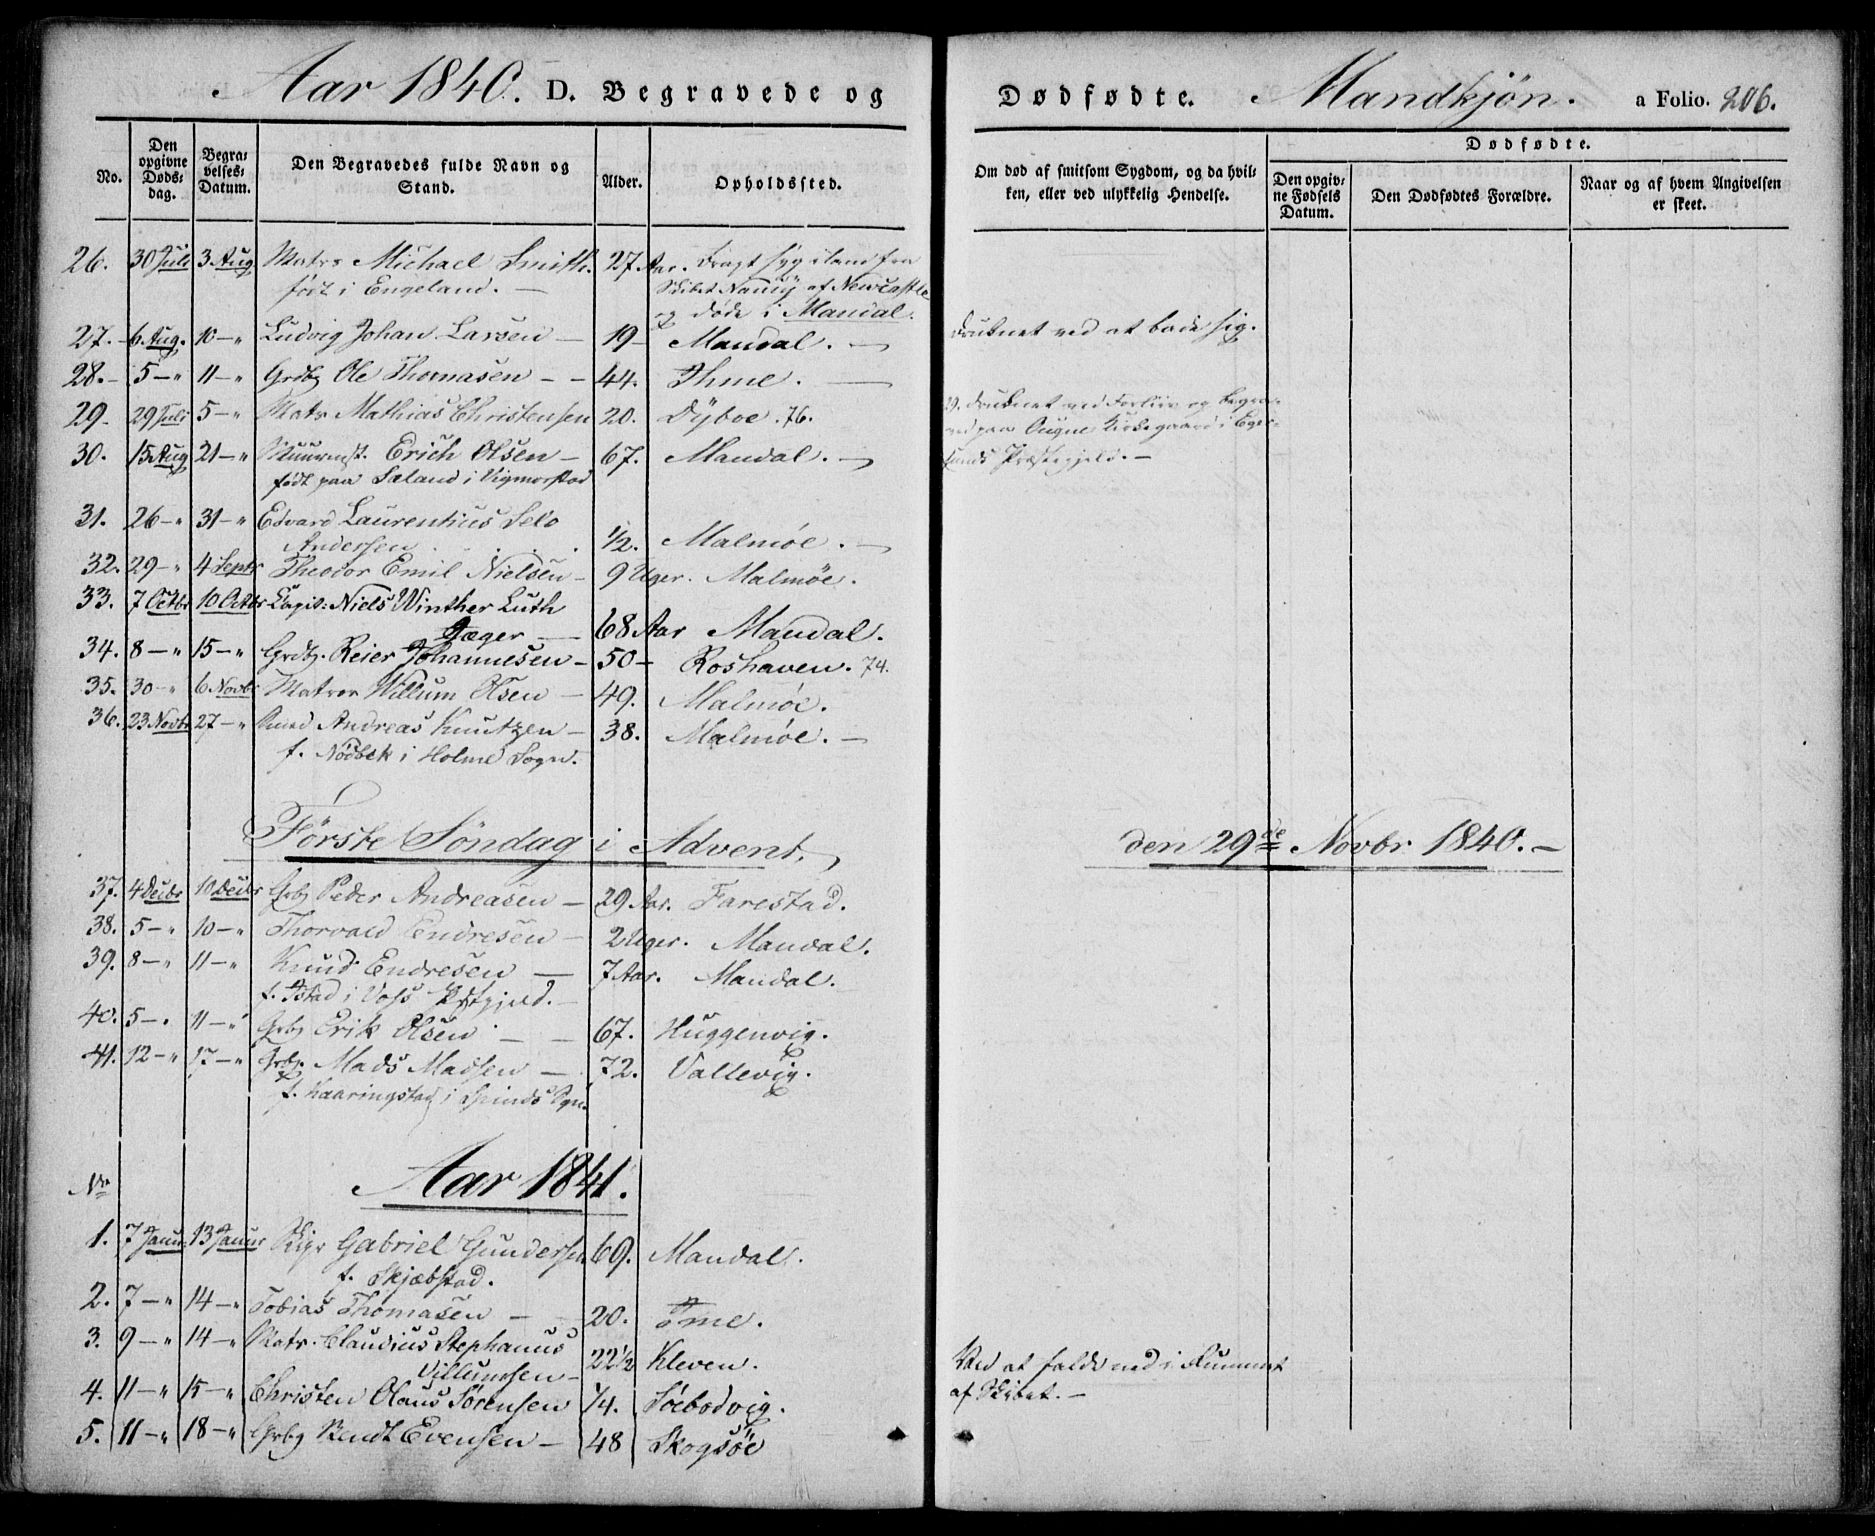 Aar 1840. D. Begravede og Dødfødte. Mandkjøn. a Folio. 206.
No. Den opgivne Døds-dag. Begra-velses-Datum. Den Begravedes fulde Navn og Stand. Alder. Opholdssted. Om død af smitsom Sygdom, og da hvil-ken, eller ved ulykkelig Hendelse. Dødfødte. Den opgiv-ne Fødsels Datum. Den Dødfødtes Forældre. Naar og af hvem Angivelsen er skeet.
26. 30 Juli 3 Aug Matrs Michael Smith. 27 Aar. Bragt syg iland fra
født i Engeland. — Skibet Nancy af Newcastle
og døde i Mandal.
27. 6 Aug. 10 — " Ludvig Johan Larsen — 19 — Mandal. — Druknet ved at bade sig.
28. 5 — " 11 — " Grdbg Ole Thomasen — — 44. Ihme. —
29. 29 Juli 5 — " Matr Mathias Christensen 20. Dyboe. 76. 29. druknet ved Forliis og begra-
vet paa Ougne Kirkegaard i Eger-
sunds Præstegjeld. —
30. 15 Aug 21 — " Muurmst. Erich Olsen — 67. Mandal. —
født paa Sæland i Vigmorstad
31. 26 — " 31 — " Edvard Laurentius Selo
Andersen . . . . 1/2. Malmøe. —
32. 29 — " 4 Septr Theodor Emil Nielsen — 9 Uger. Malmøe.
33. 7 Octbr 10 Octbr Capit: Niels Winther Luth
Jæger — 68 Aar Mandal.
34. 8 — " 15 — " Grdbg. Reier Johannesen — 50 — Roshaven. 74.
35. 30 — " 6 Novbr Matros Willum Olsen — 49. Malmøe.
36. 23 Novbr 27 — " Andreas Knutzen — 38. Malmøe. —
f. Nødbek i Holme Sogn.
Første Søndag i Advent, den 29de Novbr 1840. —
37. 4 Decbr 10 Decbr Grbg Peder Andreasen — 29 Aar. Farestad.
38. 5 — " 10 — " Thorvald Endresen — 2 Uger. Mandal.
39. 8 — " 11 — " Knud Endresen — 7 Aar. Mandal.
f. i Voss Pstgjeld. —
40. 5 — " 11 — " Grbg Erik Olsen — — 67. Huggenvig.
41. 12 — " 17 — " Grbg. Mads Madsen — 72. Vallevig.
f. Kaaringstad i Spinds Sgn.
Aar 1841.
No
1. 7 Janur 13 Janur Skipr Gabriel Gundersen 69. Mandal.
f. Skjæbstad.
2. 7 — " 14 — " Tobias Thomasen — 20. Ime.
3. 9 — " 14 — " Matr. Claudius Stephanus
Villumsen — 22 1/2 Kleven. Ved at falde ned i Rummet
af Skibet. —
4. 11 — " 15 — " Christen Olaus Sørensen 14. Söebodvig.
5. 11 — " 18 — " Grbg Bendt Evensen — 48 Skogsöe